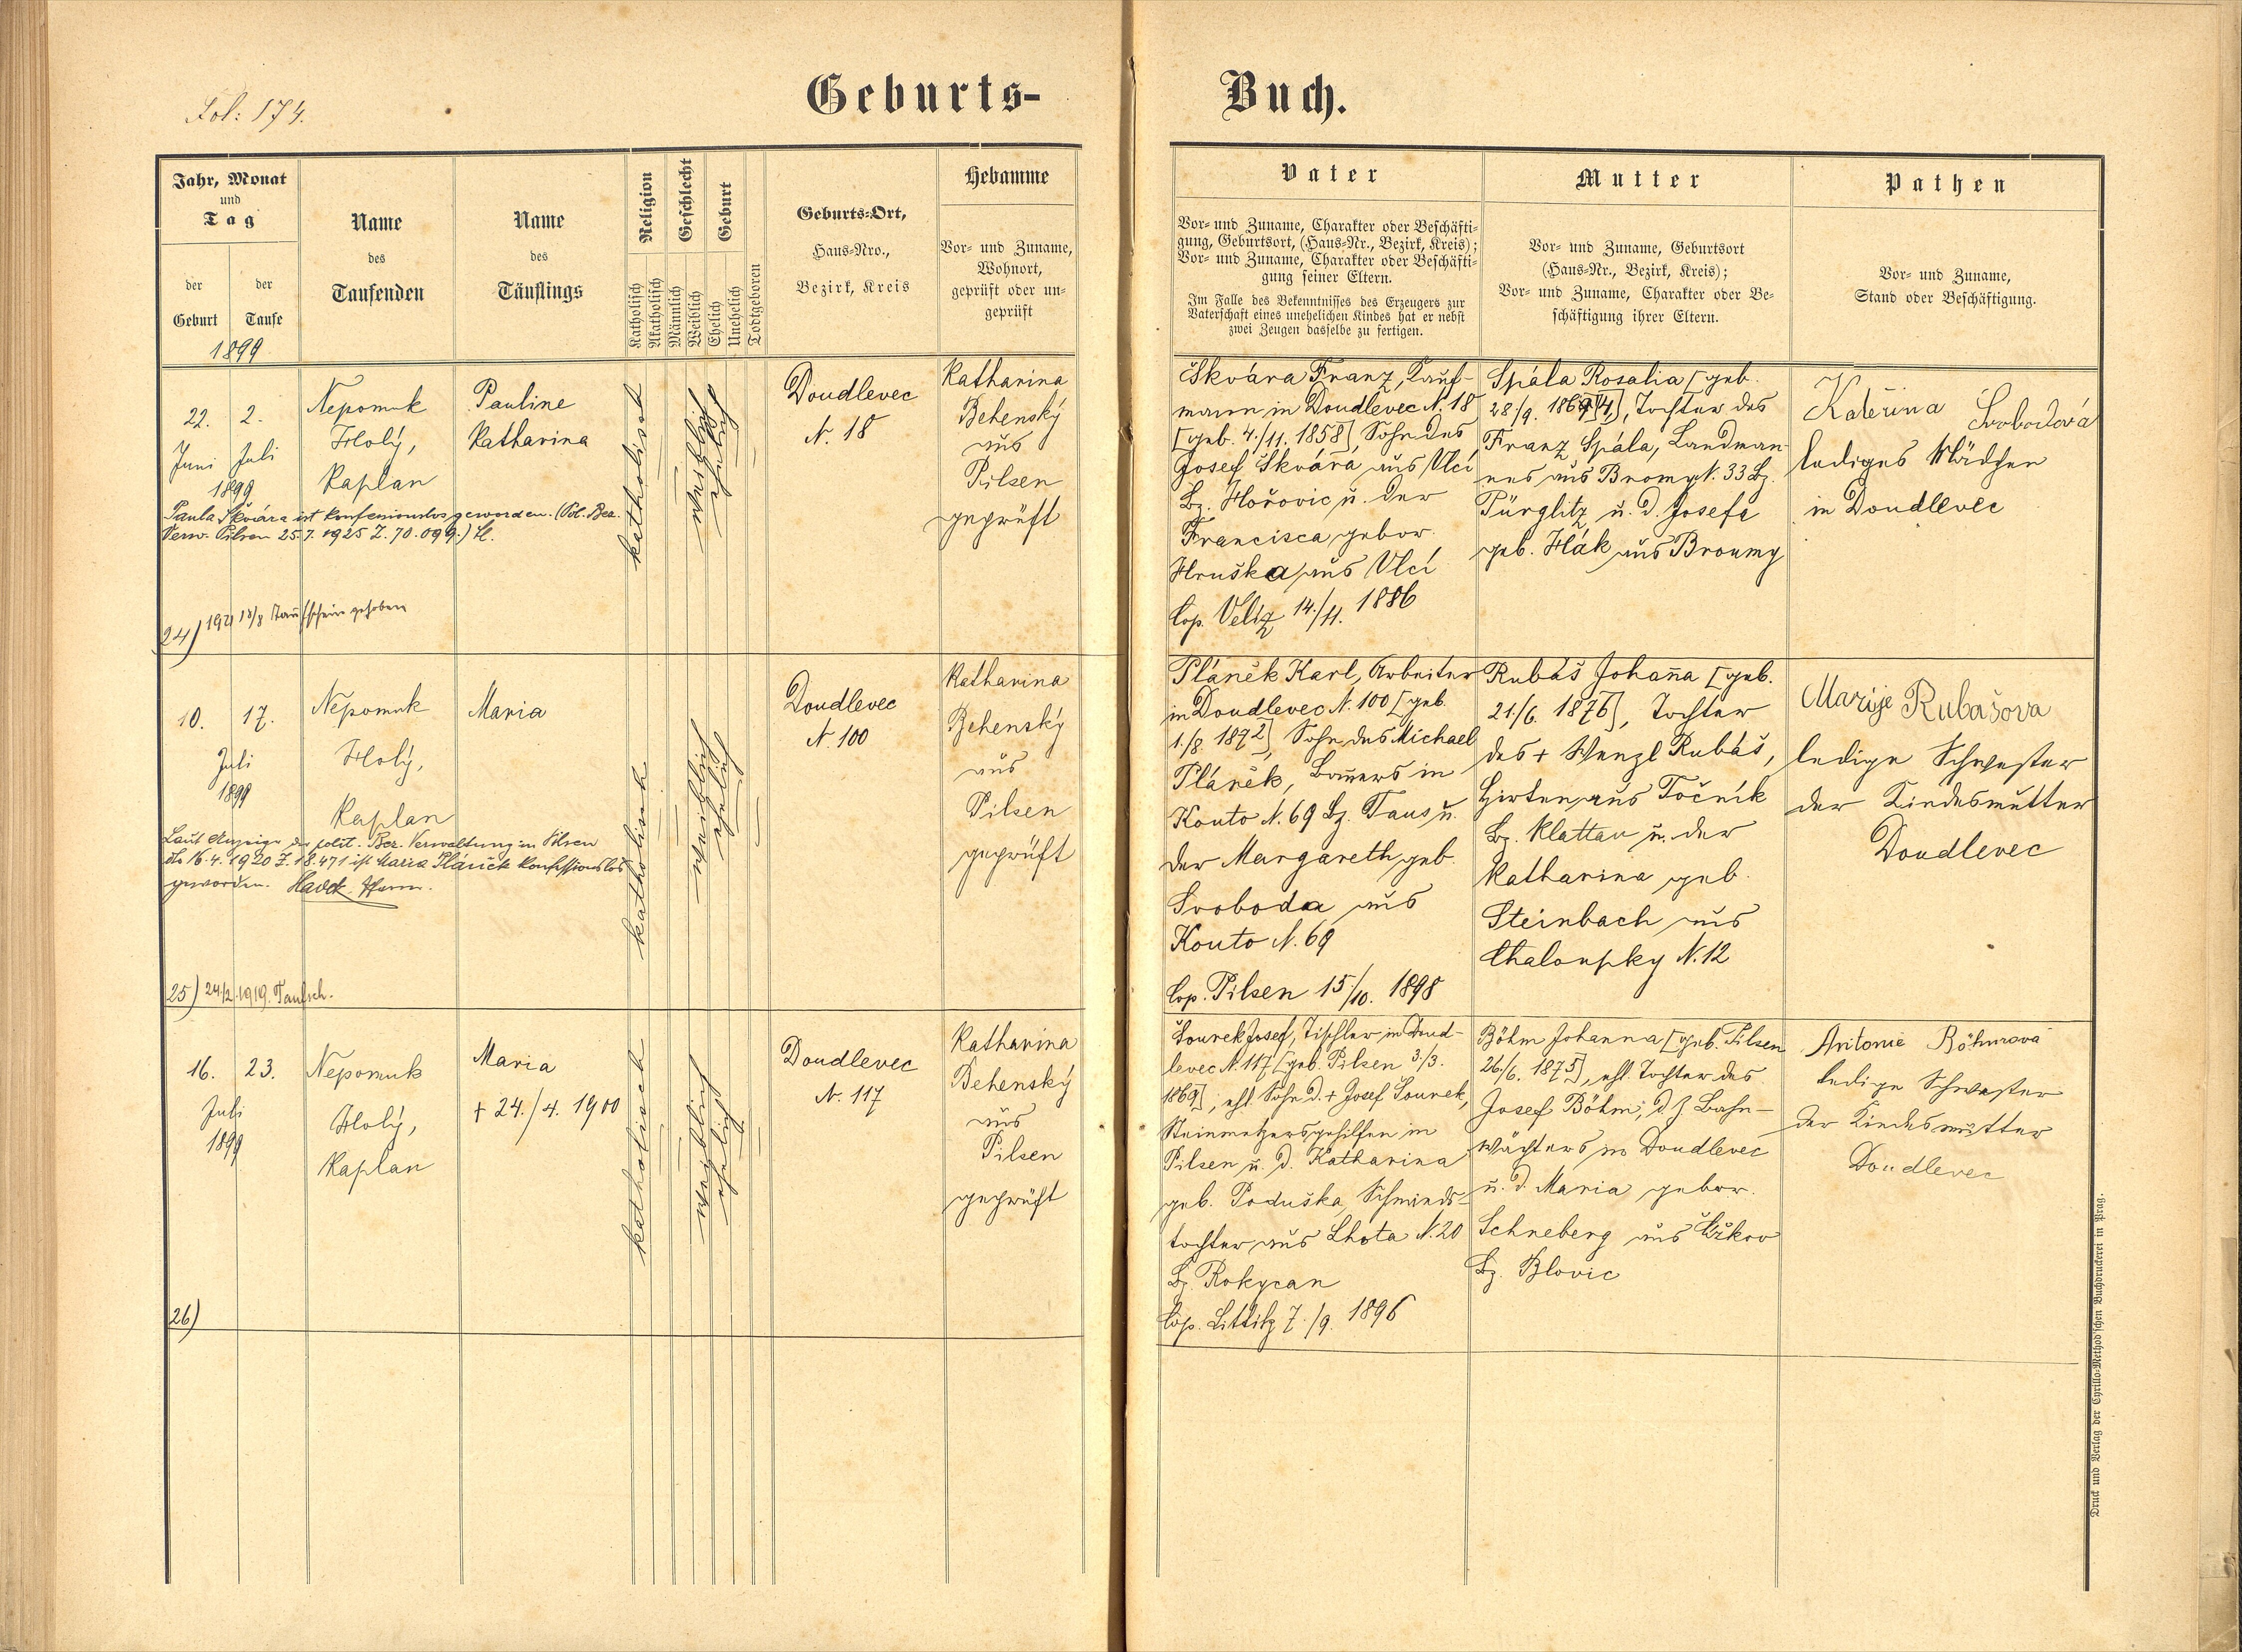 Fol: 174.
Geburts-
Buch.
Jahr, Monat
und
Tag
der
Geburt
der
Taufe
1899
Name
des
Taufenden
Name
des
Täuflings
Religion
Katholisch
Akatholisch
Geschlecht
Männlich
Weiblich
Geburt
Ehelich
Unehelich
Todtgeboren
Geburts-Ort,
Haus-Nro.,
Bezirk, Kreis
Hebamme
Vor- und Zuname,
Wohnort,
geprüft oder un-
geprüft
Vater
Vor- und Zuname, Charakter oder Beschäfti-
gung, Geburtsort, (Haus-Nr., Bezirk, Kreis);
Vor- und Zuname, Charakter oder Beschäfti-
gung seiner Eltern.
Im Falle des Bekenntnisses des Erzeugers zur
Vaterschaft eines unehelichen Kindes hat er nebst
zwei Zeugen dasselbe zu fertigen.
Mutter
Vor- und Zuname, Geburtsort
(Haus-Nr., Bezirk, Kreis);
Vor- und Zuname, Charakter oder Be-
schäftigung ihrer Eltern.
Pathen
Vor- und Zuname,
Stand oder Beschäftigung.
22.
Juni
2.
Juli
1899
Nepomuk
Holý,
Kaplan
Pauline
Katharina
katholisch
weiblich
ehelich
Doudlevec
N. 18
Katharina
Behenský
aus
Pilsen
geprüft
Paula Škvára ist konfessionslos geworden. (Pol. Bez.
Verw. Pilsen 25.7.1925 Z. 70.099.)
24) 1921 18/8 Taufschein gehoben
Škvára Franz, Kauf-
mann in Doudlevec N. 18
[geb. 4./11. 1858] Sohn des
Josef Škvára aus Vlcí
Bz. Hořovic u. der
Francisca, gebor.
Hruška aus Vlcí
Cop. Veliz 14./11. 1886
Spála Rosalia [geb.
28/9. Tochter des
Franz Spála, Landman-
nes aus Broumy N. 33 Bz.
Pürglitz u. d. Josefa
geb. Hák aus Broumy
Kateřina Svobodová
lediges Mädchen
in Doudlevec
10.
17.
Juli
1899
Nepomuk
Holý,
Kaplan
Maria
katholisch
weiblich
ehelich
Doudlevec
N. 100
Katharina
Behenský
aus
Pilsen
geprüft
Laut Anzeige der polit. Bez. Verwaltung in Pilsen
dto 16.4.1920 Z. 18.471 ist Maria Pláněk konfessionslos
geworden. Pfarrer.
25) 24/2. 1919. Taufsch.
Pláněk Karl, Arbeiter
in Doudlevec N. 100 [geb.
1./8. 1872] Sohn des Michael
Pláněk, Bauers in
Kouto N. 69 Bz. Taus u.
der Margareth geb.
Svoboda aus
Kouto N. 69
Cop. Pilsen 15./10. 1898
Rubáš Johan̄a [geb.
21./6. 1876], Tochter
des + Wenzl Rubáš,
Hirten aus Točník
Bz. Klattau u. der
Katharina geb.
Steinbach aus
Chaloupky N. 12
Marije Rubašova
ledige Schwester
der Kindesmutter
Doudlevec
16.
23.
Juli
1899
Nepomuk
Holý,
Kaplan
Maria
+ 24./4. 1900
katholisch
weiblich
ehelich
Doudlevec
N. 117
Katharina
Behenský
aus
Pilsen
geprüft
26)
Lourek Josef, Tischler in Doud-
levec N. 117 [geb. Pilsen 3./3.
1869], ehl. Sohn d. + Josef Lourek,
Steinmetzersgehilfen in
Pilsen u. d. Katharina
geb. Poduška, Schmieds-
tochter aus Lhota N. 20
Bz. Rokycan
Cop. Littitz 7./9. 1896
Böhm Johanna [geb. Pilsen
26./6. 1875], ehl. Tochter des
Josef Böhm, d. Z. Bahn-
wächters in Doudlevec
u. d. Maria gebor.
Schneberg aus
Bz. Blovic
Antonie Böhmová
ledige Schwester
der Kindesmutter
Doudlevec
Druck und Verlag der Cyrillo-Method'schen Buchdruckerei in Prag.